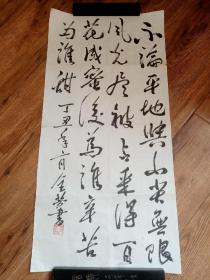 不論平地與山尖無限
風光盡被占采得百
花成蜜後為誰辛苦
為誰甜 丁丑年六月金書